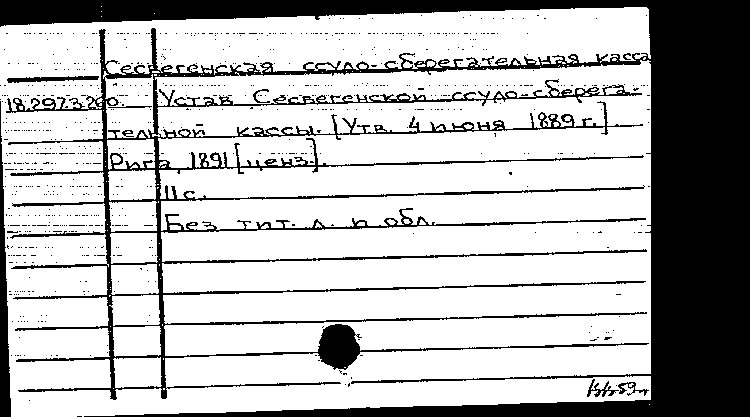 Сесвегенская ссудо-сберегательная касса
18.297.3.260. Устав Сесвегенской ссудо-сберега-
тельной кассы. [Утв. 4 июня 1889 г.].
Рига, 1891 [ценз.].
11 с.
Без тит. л. и обл.